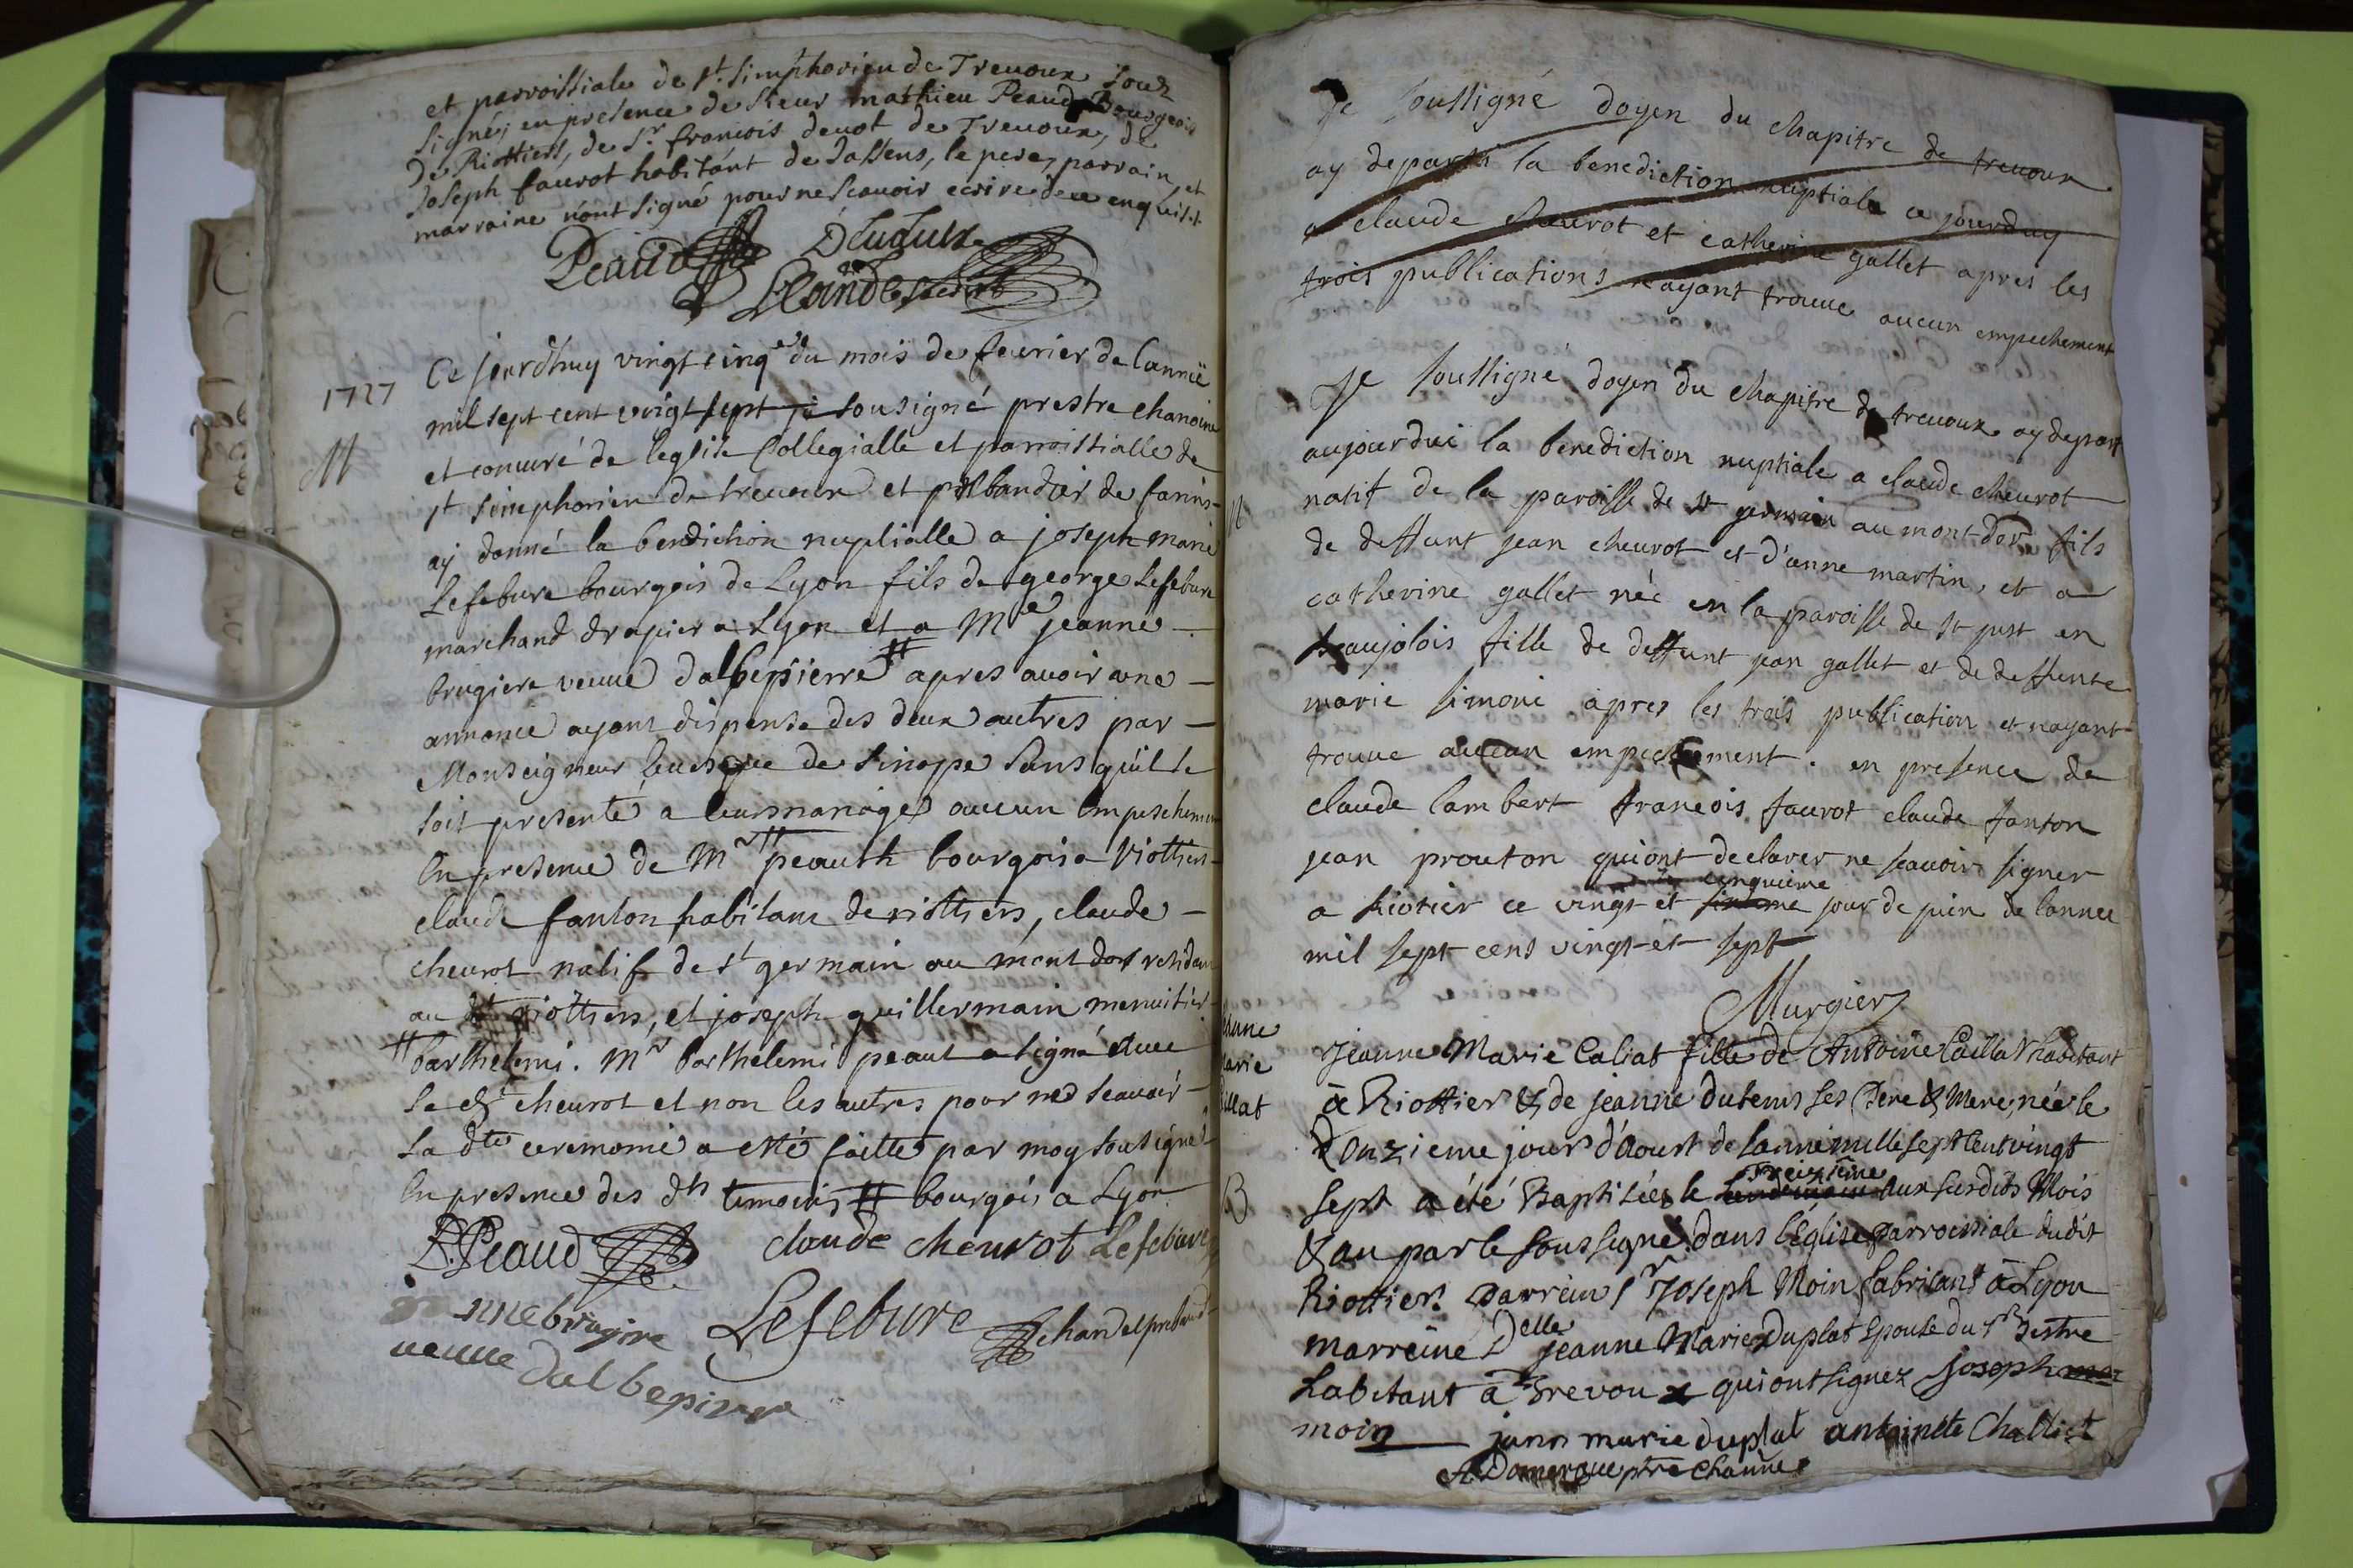 et parroissiale de st. simphorien de Trevoux souz
signé; en presence de sieur mathieu Peaud Bourgeois
de Riottiers, de sr. francois devot de Trevoux, de
Joseph faurot habitant de Jassens, le pere, parrain, et
marraine n'ont signé pour ne scauoir ecrire de ce enquist.
Peaud
1727
Ce jourdhuy vingt cinq du mois de feurier de lannéé
mil sept cent vingt sept je sousigné prestre chanoine
M
et concuré de leglise Collegialle et parroissialle de
st simphorien de treuoux et prebandier de farins
ay donné la benediction nuptialle a joseph marie
Lefebure bourgois de Lyon fils de george Lefebure
marchand drapier a Lyon et a Me jeanne
brugiere veuue dalbepierre # apres auoir une
annonce ayant dispense des deux autres par
Monseigneur leuesque de Sinope sans quil se
soit presenté a leur mariage aucun Empeschement
En presence de Mr # peaut bourgois a riottiers
claude fanton habitant de riottiers, claude
cheurot natif de st germain au mont dor residant
au dt riottiers, et joseph guillermain menuisier
# barthelemi. Mr barthelemi peaut a signé auec
le dt cheurot et non les autres pour ne scauoir
la dte ceremonie a esté faitte par moy sousigné
En presence des dts temoins # bourgois a Lyon
B. Peaud claude cheurot Lefebure
jeanne brugire Lefebure
ueuue dalbepierre
Je soussigné doyen du chapitre de treuoux
ay departi la benediction nuptiale ce jourduy
a claude cheurot et catherine gallet apres les
trois publications nayant trouue aucun empechement
Je soussigné doyen du chapitre de treuoux ay departi
aujourdui la benediction nuptiale a claude cheurot
M
natif de la paroisse de st germain au mont-dor fils
de deffunt jean cheurot et d'anne martin, et a
catherine gallet née en la paroisse de st just en
beaujolois fille de deffunt jean gallet et de deffunte
marie simoni apres les trois publication et nayant
trouue aucun empechement. en presence de
claude lambert francois faurot claude fanton
jean prouton qui ont declarer ne scauoir signer
cinquieme
a riotier ce vingt et sixieme jour de juin de lannee
mil sept cens vingt et sept
Murgier
Jeanne Marie Caillat
Jeanne Marie Caliat fille de Antoine Caillat habitant
à Riottier & de jeanne dutems ses Pere & Mere, née le
Donzieme jour d'Aoust de lanné mille sept cent vingt
treizieme
B
sept a été Baptisée le lendemain aux susdits Mois
& an par le soussigné dans l'Église Parroissiale dudit
Riottier. Parrein Sr Joseph Moin fabricant à Lyon
marreine Delle jeanne Marie Duplat Epouse du Sr Jestre
habitant à Trevoux qui ont signez Joseph
moin jann marie duplat antoinette Challiot
A. Domergue ptre Channe